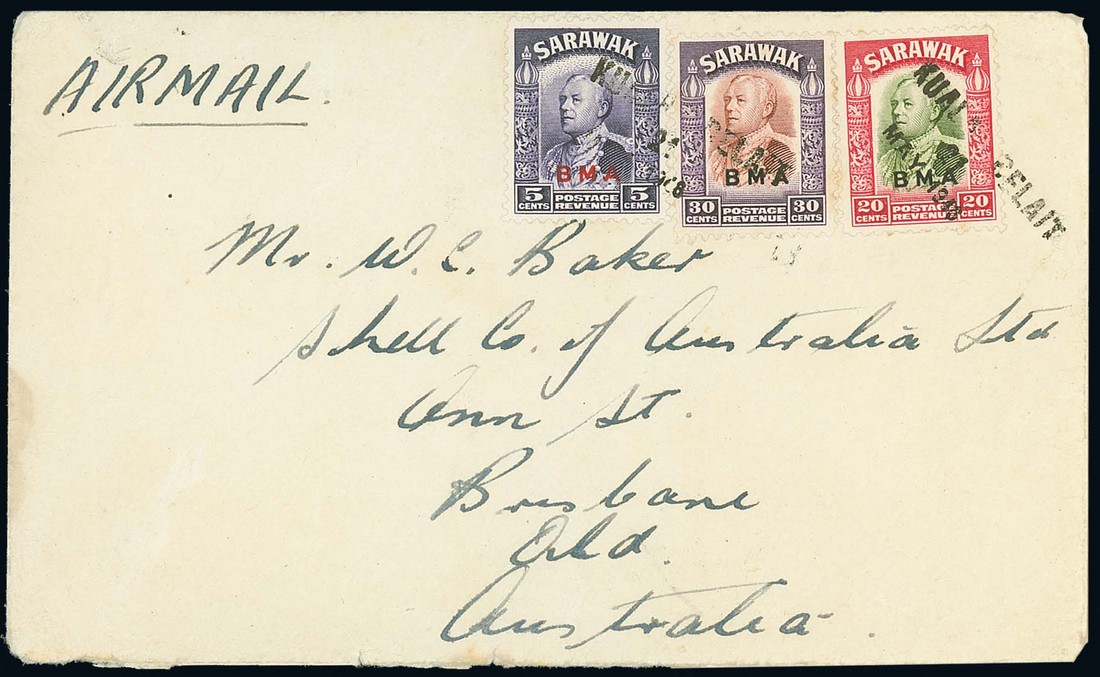 AIRMAIL.
SARAWAK
BMA
5 CENTS POSTAGE REVENUE 5 CENTS
SARAWAK
BMA
30 CENTS POSTAGE REVENUE 30 CENTS
SARAWAK
BMA
20 CENTS POSTAGE REVENUE 20 CENTS
BELAIT
MAY
Mr. W. C. Baker
Shell Co. of Australia Ltd
Ann St.
Brisbane
Qld.
Australia.